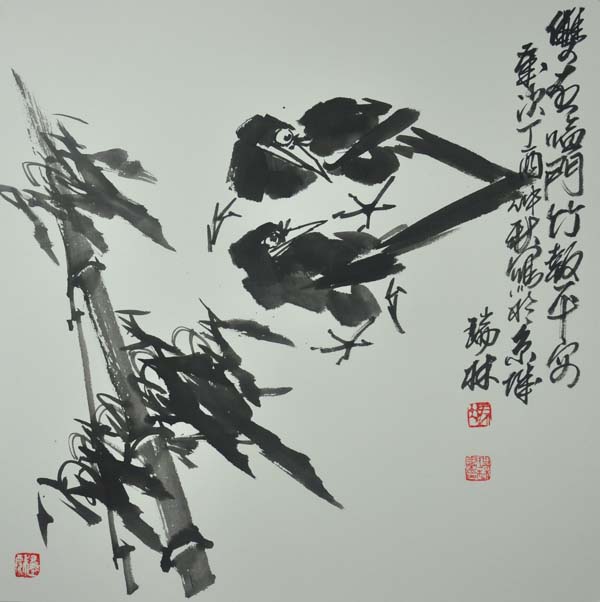 雙喜臨門竹報平安
歲次丁酉仲秋寫於京城
瑞林